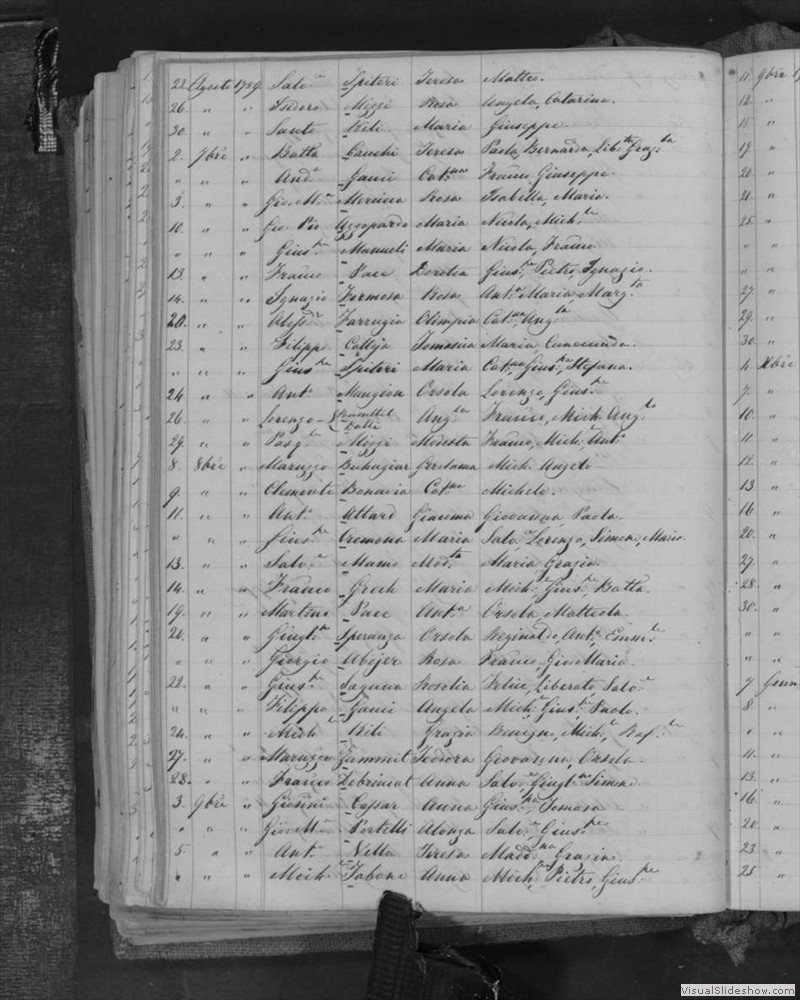 22. Agosto 1789. Salv.e Spiteri Teresa Matteo.
26. " " Isidoro Mizzi Rosa Angela, Catarina.
30. " " Sante Xiti Maria Giuseppe.
2. 7bre " Batta Cauchi Teresa Paola, Bernarda, Lib.ta Graz.ta
" " " And.a Gauci Cat.na Franco, Giuseppe.
3. " " Gio. M.a Mercieca Rosa Isabella, Maria.
10. " " Gio Pio Azzopardo Maria Nicola, Mich.le
" " " Gius.pe Manueli Maria Nicola, Franco.
13. " " Franco Pace Dorotea Gius.pe Pietro, Ignazio.
14. " " Ignazio Formosa Rosa Ant.a Maria, Marg.ta
20. " " Aless.dr Farrugia Olimpia Cat.na, Ang.la
23. " " Filippo Calleja Tomasina Maria Cunecunda.
" " " Gius.pe Spiteri Maria Cat.na, Gius.pa, Stefana.
24. " " Ant.o Mangion Orsola Lorenzo, Gius.pe
26. " " Lorenzo Ang.la Franco, Mich. Ang.lo
29. " " Pasq.le Mizzi Modesta Franco, Mich.e, Ant.o
8. 8bre " Maruzzo Buhagiar Mich. Angelo
9. " " Clemente Bonavia Cat.na Michele.
11. " " Ant.o Attard Giacoma Giovanna, Paola.
" " " Gius.pe Cremona Maria Salv.e Lorenzo, Simon, Mario.
13. " " Salv.e Mamo Mad.ta Maria Grazia.
14. " " Franco Grech Maria Mich.le Gius.e Batta.
19. " " Martino Pace Ant.a Orsola, Matteola.
20. " " Giugl.o Speranza Orsola Reginaldo, Ant.o, Emm.le
" " " Giorgio Abejer Rosa Franco, Gio. Maria.
22. " " Gius.e Saguna Rosolia Felice, Liberato, Salv.e
" " " Filippo Gauci Angela Mich. Gius.e Paolo.
24. " " Mich.l Xiti Grazia Benigno, Mich.l, Raf.le
27. " " Maruzzo Zammit Teodora Giovanna, Orsola.
28. " " Franco Debrincat Anna Salv.e Giugl.na Simone
3. 9bre " Gionni Cassar Anna Gius.pa, Tomasa
" " " Gio. M.a Portelli Alonza Salv.e Gius.pe
5. " " Ant.o Vella Teresa Madd.na Grazia
" " " Mich.e Tabone Anna Mich.le, Pietro, Gius.pe
11. 9bre
12. "
15. "
17. "
20. "
21. "
25. "
" "
27. "
29. "
30. "
4. Xbre
7. "
10. "
11. "
12. "
13. "
16. "
20. "
27. "
28. "
30. "
" "
" "
7 Genn
8. "
" "
11. "
13. "
16. "
20. "
23 "
25 "
VisualSlideshow.com